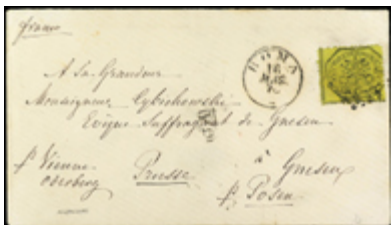 franco
ROMA
A Sa Grandeur
Monseigneur Cybichowski
Evêque Suffragant de Gnesen
p. Vienne
Oderberg
Prusse
à Gnesen
p. Posen